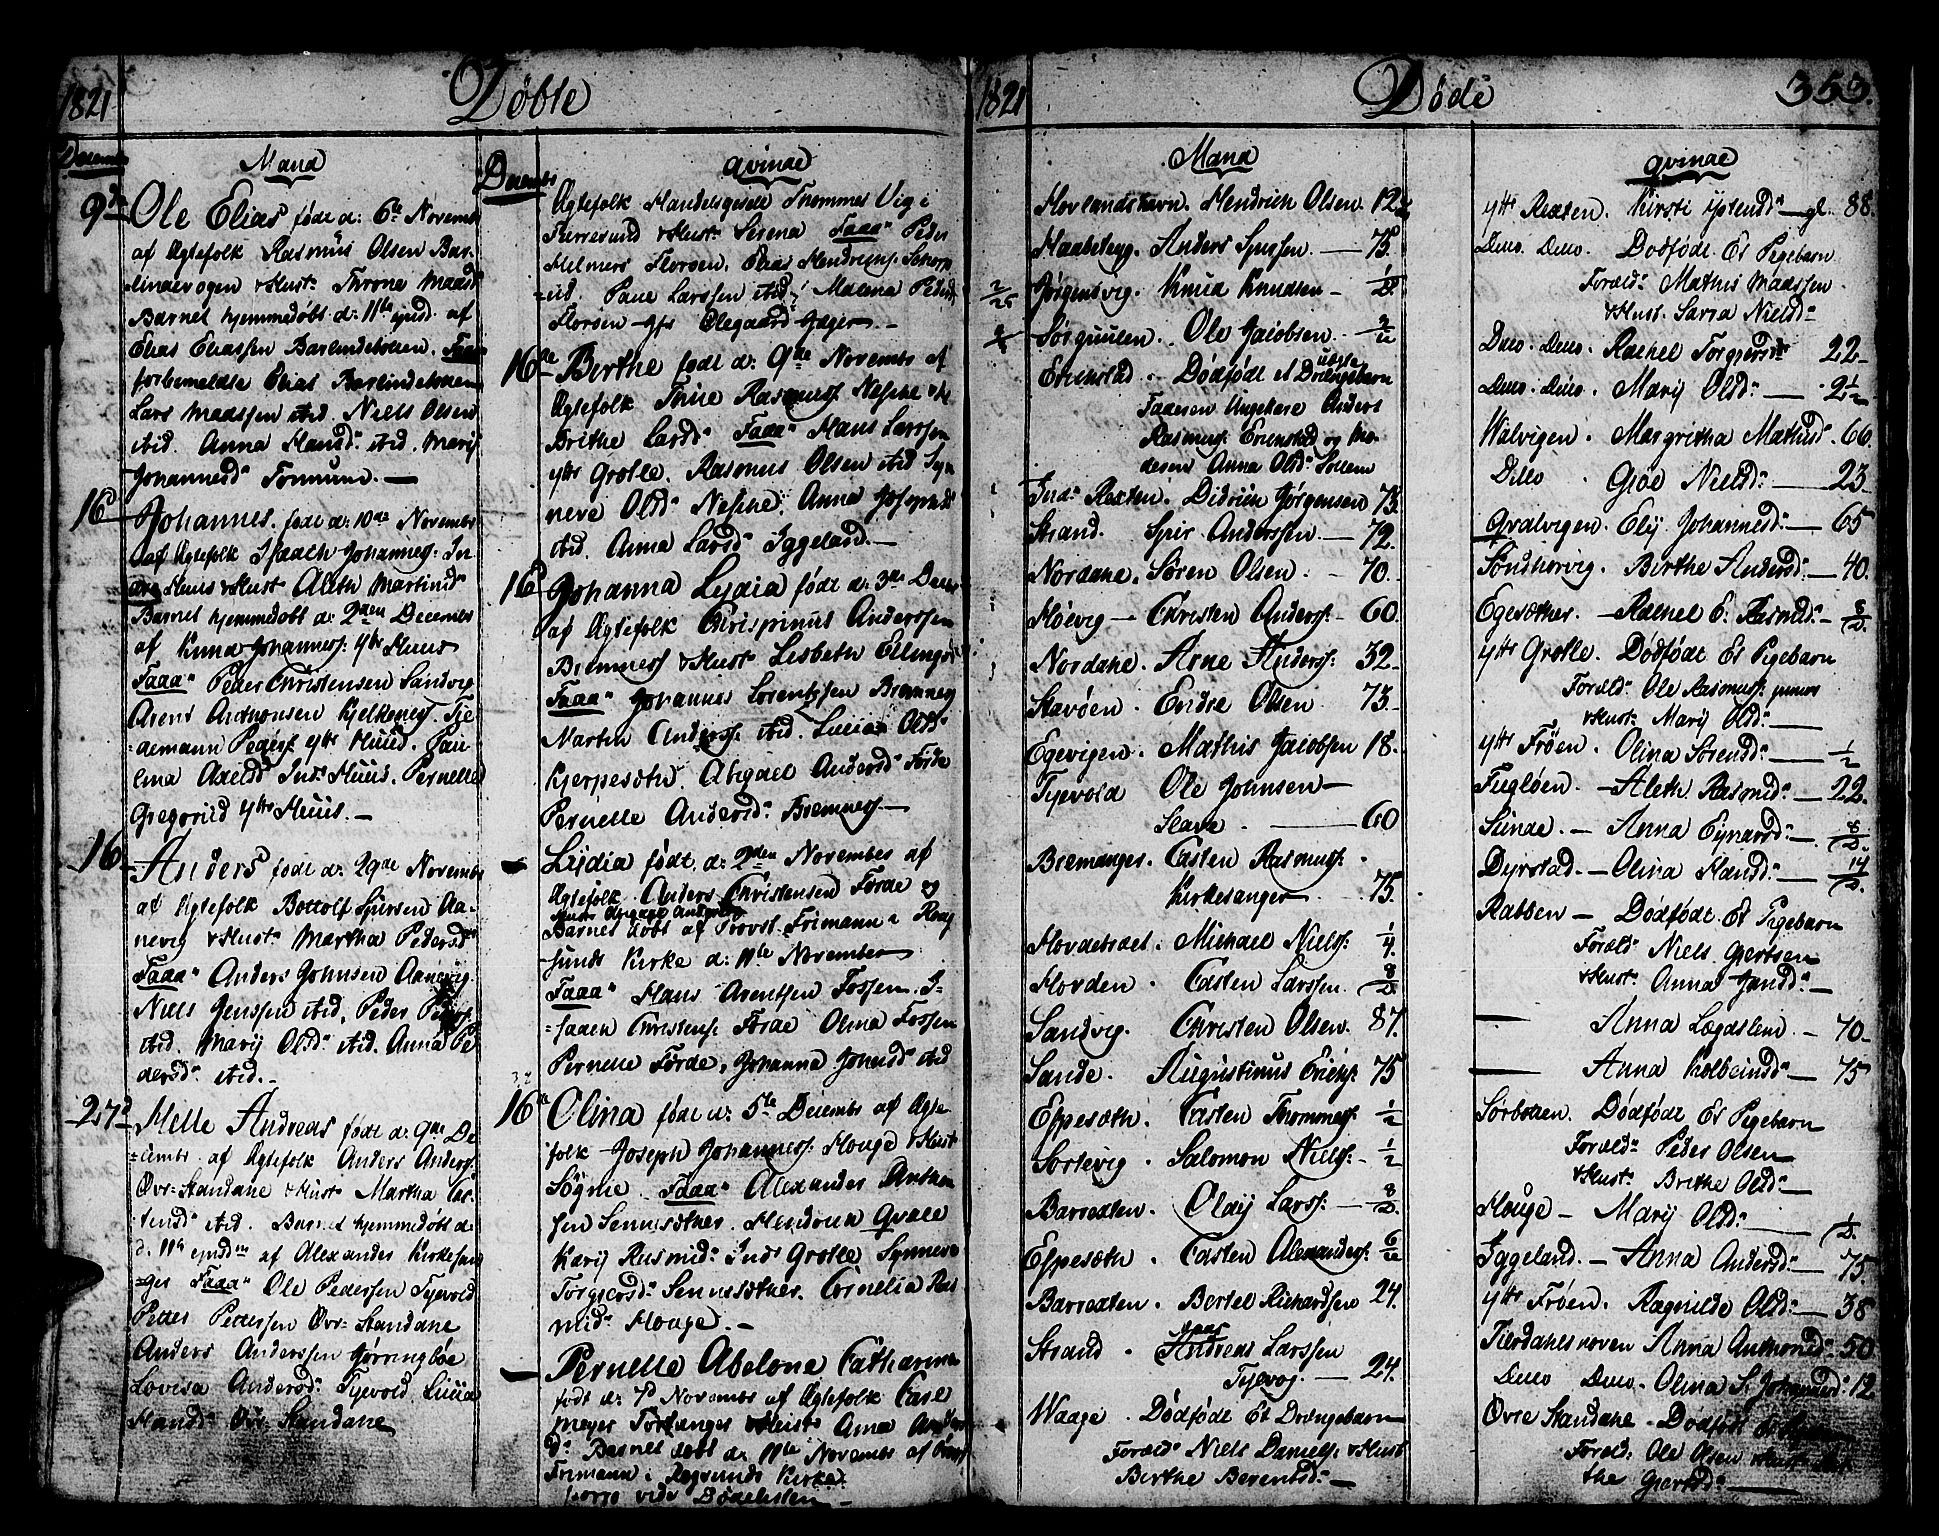 1821
Døbte
Decembr
Mand
9de
Ole Elias født d: 6te Novembr
af Ægtefolk Rasmus Olsen Bar-
lindevogen & Hustr Throne Mads
Barnet hjemmedøbt d: 11te ejusd. af
Elias Eliassen Barlindebotten. Fadd
forbemeldte Elias Barlindebotten
Lars Madssen ibid. Niels Olsen
ibid. Anna Hansd: ibid. Marij
Johannesd:
16
Johannes. født d: 10de Novembr
af Ægtefolk Isaach Johanness: In
dre Huus & Hustr Aleth Martinsd
Barnet hjemmedøbt d: 2den Decembr
af Knud Johanness: Ytr Huus
Fadd: Peder Christensen Sandvig
Arent Anthonsen Kjelkenes. Tie-
demann Peders: Ytr Huus. Pau-
lina Axelsd Indr Huus. Pernelle
Gregorisd Ytr Huus. —
16
Anders født d: 29de Novembr
af Ægtefolk Bottolf Sjursen Aa-
nevig & Hustr Martha Pedersd
Fadd: Anders Johnsen Aanevig
Niels Jenssen ibid, Peder Peders:
ibid. Marij Olsd: ibid. Anna Pe
dersd: ibid. —
27de
Melle Andreas født d: 9de De
=cembr. af Ægtefolk Anders Anders:
Øvr: Standane & Hustr Martha Car-
stensd: ibid. Barnet hjemmedøbt d:
d. 11te ejusdm af Alexander Kirkesan
=ger Fadd: Ole Pedersen Tyevold
Petter Pettersen Øvr: Standane
Anders Anderssen Gorringbøe
Lovisa Andersd: Tyevold. Lucia
Hansd Øvr: Standane
Decembr
qvinde
Ægtefolk Handelsgesell Thommes Vig i
Furresund & Hustr Serena Fadd: Peder
Helmers Florøen. Elias Hendrichs:
Paul Larssen ibid: Malena Peders
Florøen Olegaard Jæger. —
16de
Berthe født d: 9de Novembr af
Ægtefolk Thue Rasmuss. Nesche & H
Brithe Larsd: Fadd: Hans Larssen
ytr Grotle. Rasmus Olsen ibid Syn
neve Olsd: Nesche. Anna Josephsd
ibid. Anna Larsd Iggeland. —
16de
Johanna Lydia født d: 3de Decbr
af Ægtefolk Chrispinus Anderssen
Bremness & Hustr Lisbeth Ellings
Fadd: Johannes Lorentzsen Bremnes
Morten Anderss: ibid. Lucia Olsd
Kjerpeseth. Abigael Andersd Førde
Pernelle Andersd: Bremness —
Lydia født d: 2den Novembr af
Ægtefolk Anders Christensen Førde og
Hustr Abigael Andersd
Barnet døbt af Provst Frimann i Roug
sunds Kirke d: 11te November
Fadd: Hans Arentsen Fossen. I-
=saach Christens: Førde Olina Fossen
Pernelle Førde, Johanna Jonsd: ibid
16de
Olina født d: 5te Decembr af Ægte
folk Joseph Johanness: Houge & Hustr
Sygnie. Fadd: Alexander Anthon
sen Sennesæther. Hendrich Qvale
Karij Rasmusd: Indr Grotle Synneve
Torgiersd: Sennesæther. Cornelia Ras
musd: Houge. —
Pernelle Abelone Catharina
født d: 7d Novembr af Ægtefolk Carl
Meyer & Hustr Anna Anders
d: Barnet døbt d: 11te Novembr af Provst
Frimann i Rugsunds Kirke.
vide Dødelisten —
1821
Døde
353.
Mand
Hovlandshavn. Hendrich Olsen. 12
Haabeteg. Anders Sjurssen. — 75
Jørgensvig. Knud Knudsen — ½
Sørguulen. Ole Jacobsen
Erichstad. Dødfødt et uægte Drengebarn
Faderen Ungekarl Anders
Rasmuss: Erichstad og Mo-
deren Anna Olsd:
Indr: Rexten. Didrich Jørgensen 73.
Strand. Spir Anderssen. — 72.
Nordane. Søren Olsen. - 70.
Høevig — Christen Anderss: — 60.
Nordane. Arne Anderss: 32.
Stavøen. Endre Olsen 73.
Egevigen. Mathis Jacobsen 18.
Tyevold Ole Johnsen —
Slave. — 60
Bremanger. Casten Rasmuss.
Kirkesanger — 75.
Hovdebrdet. Michael Niels: ¼
Hovden. Casten Larssen. 8/D.
Sandvig. Christen Olsen. 87.
Sande. Augustinus Erichs: 75
Eppeseth. Casten Thommes: ½
Sortevig. Salomon Niels: — ½
Barrexten. Oluf Larss: — 8/D.
Eppesæth. Casten Alexanders:
Barrexten. Bertel Richardsen 24.
Strand. Andreas Larssen
Tyevog. — 24.
Waage. Dødfødt Et Drengebarn
Foræld: Niels Daniels: & Hustr
Birthe Berentsd: —
qvinde
Ytr Rexten. Kirsti — gl. 88.
Ditto. Ditto. Dødfødt Et Pigebarn
Foræld: Mathis Madssen
& Hustr. Sara Nielsd:
Ditto. Ditto. Rachel Torgiersd 22.
Ditto. Ditto. Marij Olsd: — 2½
Walvigen. Margretha Mathisd. 66.
Ditto. Giøe Nielsd: — 23.
Gralvigen. Elij Johannesd: — 65
Sondhorvig. Birthe Andersd: — 40.
Egesæther. — Rachel E. Rasmd: — 8/D.
Ytr Grotle. Dødfødt Et Pigebarn
Foræld: Ole Rasmus: junior
& Hustr: Marij Olsd: —
Ytr Frøen. Olina Sørensd: — ½
Fugløen. — Aleth Rasmd: — 22.
Sunde. — Anna Eynarsd: — 8/D.
Dyrstad. — Olina Hansd: — 14/D.
Rabben — Dødfødt Et Pigebarn
Foræld: Niels Gjertsen
& Hustr: Anna Jansd: —
— Anna Lægdslem — 70.
— Anna Kolbeinsd: — 75
Sørbotten. Dødfødt Et Pigebarn
Foræld: Peder Olsen
& Hustr: Brithe Olsd: —
Houge — Marij Olsd: — ½/D.
Iggeland. — Anna Andersd: — 75.
Ytr Frøen. Ragnilde Olsd: — 38
Anna Anthonsd: 50
Ditto Ditto. Olina S. Johannesd: 12
Øvre Standane — Dødfødt Et Pigebarn
Foræld: Ole Olsen & Hustr
the Gjertsd: —